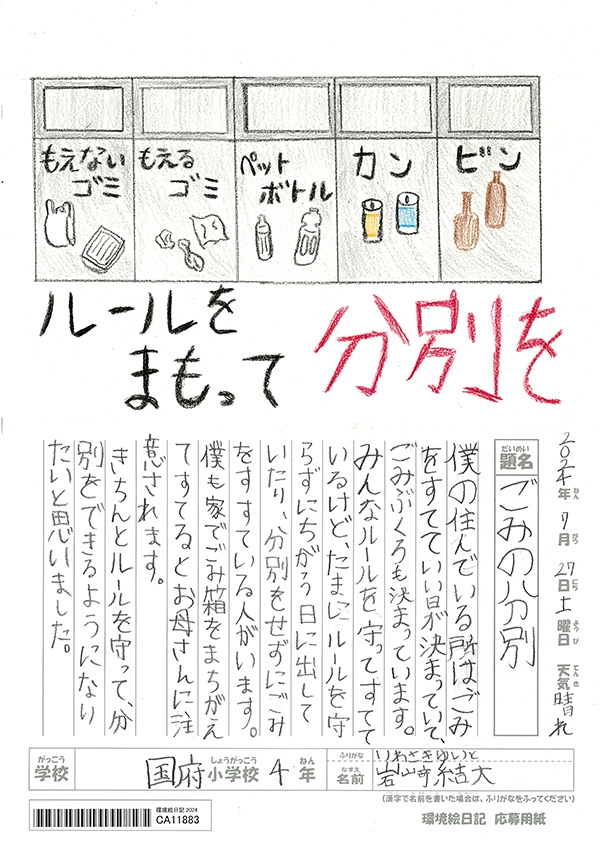 もえない
ゴミ
もえる
ゴミ
ペット
ボトル
カン
ビン
ルールを
まもって
分別を
2024年ねん 7月がつ 27日にち 土曜日ようび 天気てんき 晴れ
だいめい
題名
ごみの分別
僕の住んでいる所はごみ
をすてていい日が決まっていて、
ごみぶくろも決まっています。
みんなルールを守ってすてて
いるけど、たまにルールを守
らずにちがう日に出して
いたり、分別をせずにごみ
をすすている人がいます。
僕も家でごみ箱をまちがえ
てすてるとお母さんに注
意されます。
きちんとルールを守って、分
別をできるようになり
たいと思いました。
がっこう しょうがっこう ねん
学校 国府小学校 4年
ふりがな いわさきゆいと
なまえ
名前 岩崎結大
(漢字で名前を書いた場合は、ふりがなをふってください)
環境絵日記 2024
CA11883
環境絵日記 応募用紙